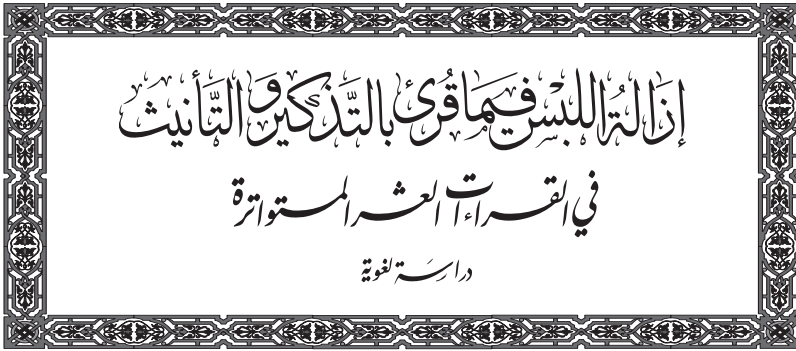 إزالة اللبس فيما قرئ بالتذكير والتأنيث
في القراءات العشر المتواترة
دراسة لغوية